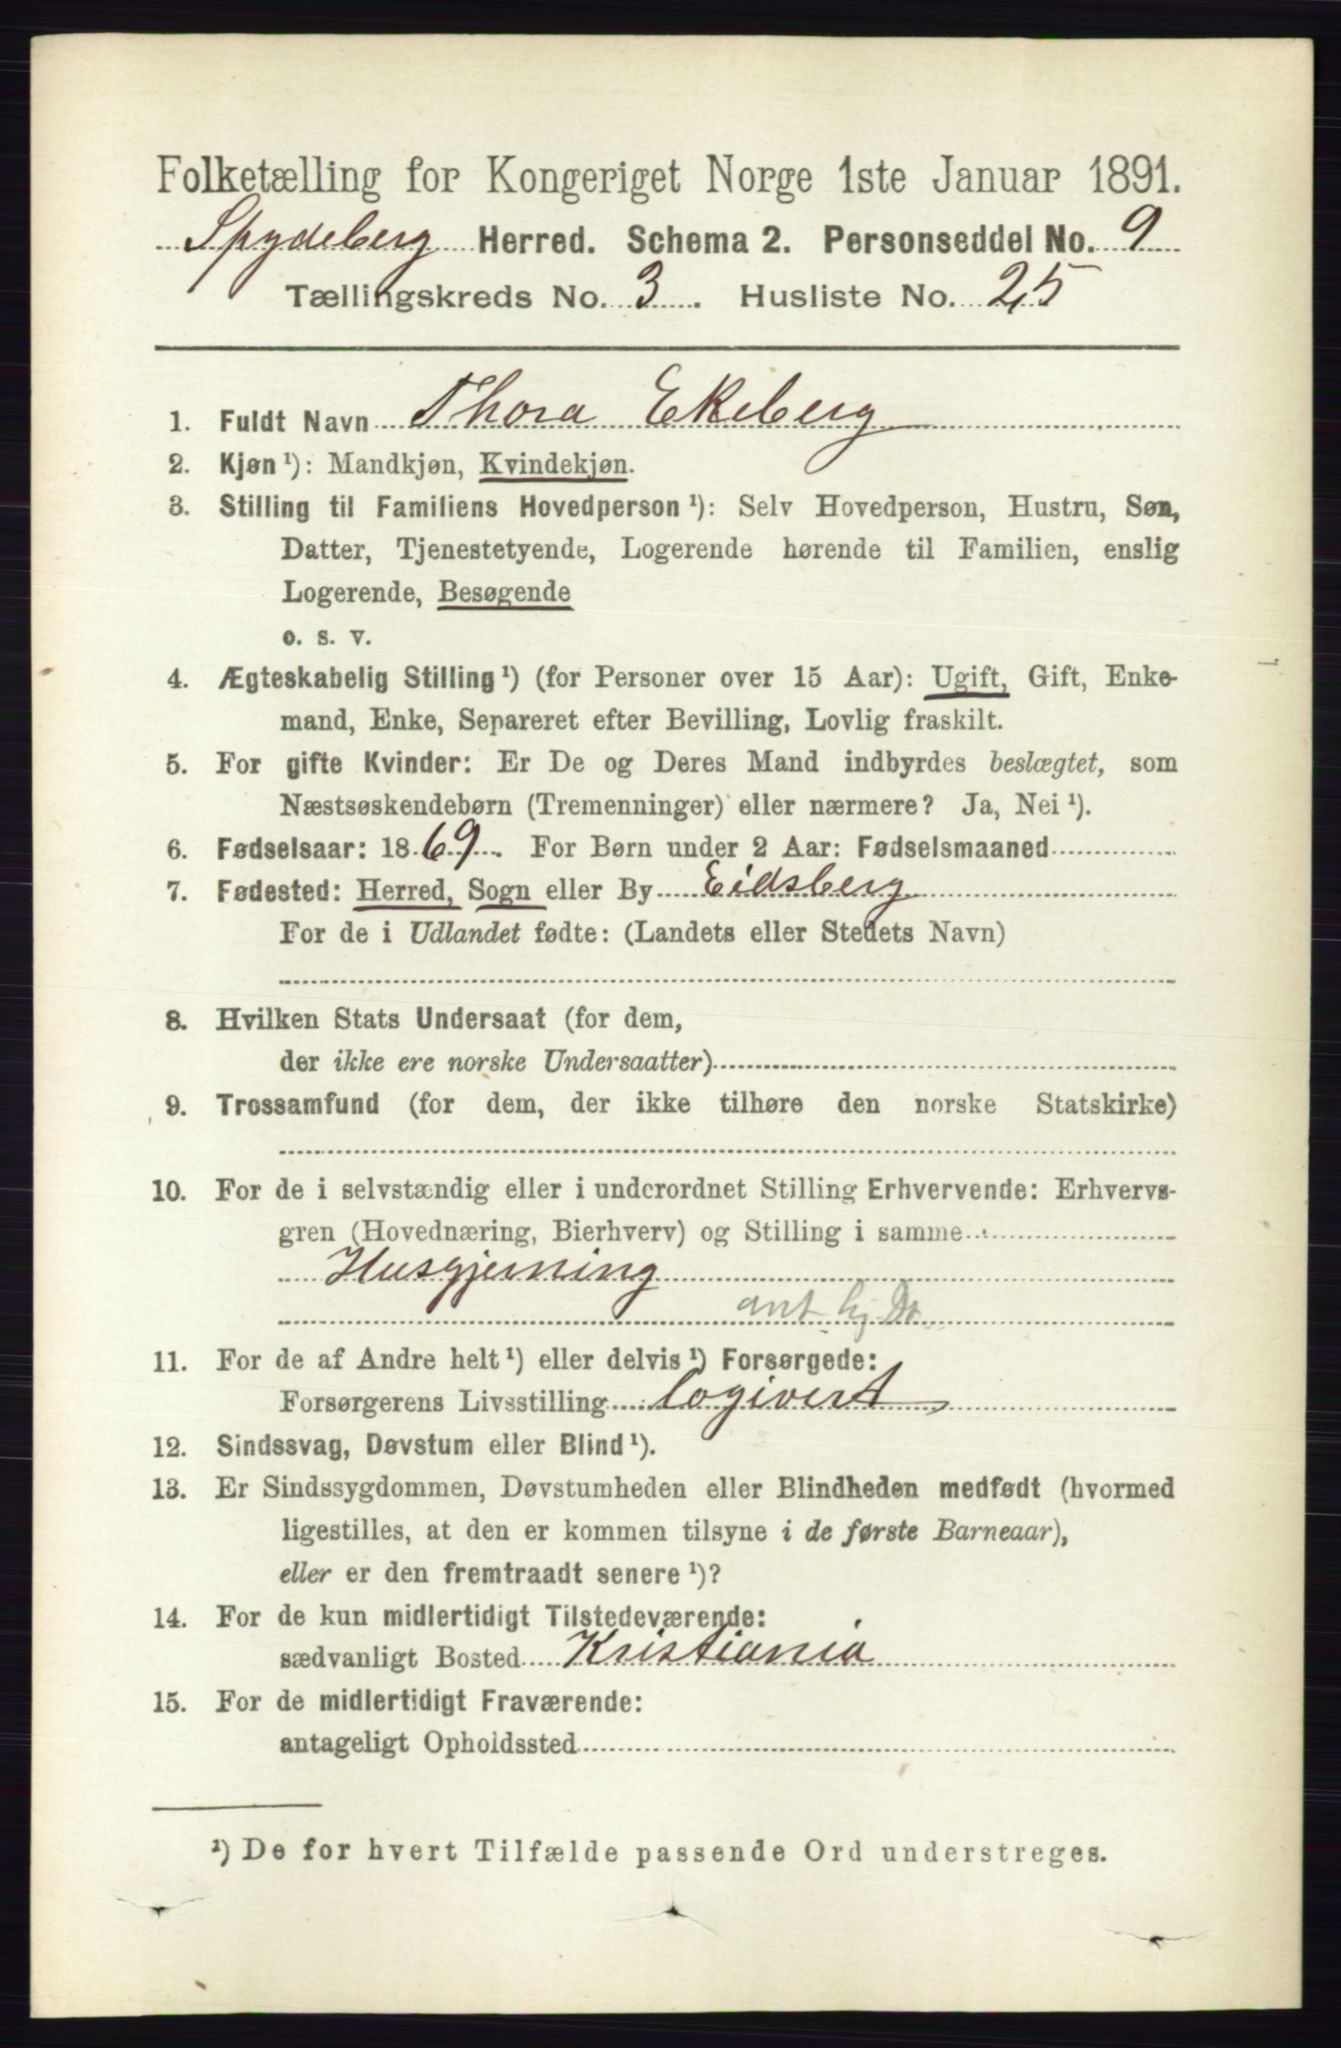 Folketælling for Kongeriget Norge 1ste Januar 1891.
Spydeberg Herred. Schema 2. Personseddel No. 9
Tællingskreds No. 3. Husliste No. 25
1. Fuldt Navn Thora Ekeberg
2. Kjøn ¹): Mandkjøn, Kvindekjøn.
3. Stilling til Familiens Hovedperson ¹): Selv Hovedperson, Hustru, Søn,
Datter, Tjenestetyende, Logerende hørende til Familien, enslig
Logerende, Besøgende
o. s. v.
4. Ægteskabelig Stilling ¹) (for Personer over 15 Aar): Ugift, Gift, Enke-
mand, Enke, Separeret efter Bevilling, Lovlig fraskilt.
5. For gifte Kvinder: Er De og Deres Mand indbyrdes beslægtet, som
Næstsøskendebørn (Tremenninger) eller nærmere? Ja, Nei ¹).
6. Fødselsaar: 1869. For Børn under 2 Aar: Fødselsmaaned
7. Fødested: Herred, Sogn eller By Eidsberg
For de i Udlandet fødte: (Landets eller Stedets Navn)
8. Hvilken Stats Undersaat (for dem,
der ikke ere norske Undersaatter)
9. Trossamfund (for dem, der ikke tilhøre den norske Statskirke)
10. For de i selvstændig eller i underordnet Stilling Erhvervende: Erhvervs-
gren (Hovednæring, Bierhverv) og Stilling i samme
Husgjerning
ant.
11. For de af Andre helt ¹) eller delvis ¹) Forsørgede:
Forsørgerens Livsstilling
12. Sindssvag, Døvstum eller Blind ¹).
13. Er Sindssygdommen, Døvstumheden eller Blindheden medfødt (hvormed
ligestilles, at den er kommen tilsyne i de første Barneaar),
eller er den fremtraadt senere ¹)?
14. For de kun midlertidigt Tilstedeværende:
sædvanligt Bosted Kristiania
15. For de midlertidigt Fraværende:
antageligt Opholdssted
¹) De for hvert Tilfælde passende Ord understreges.